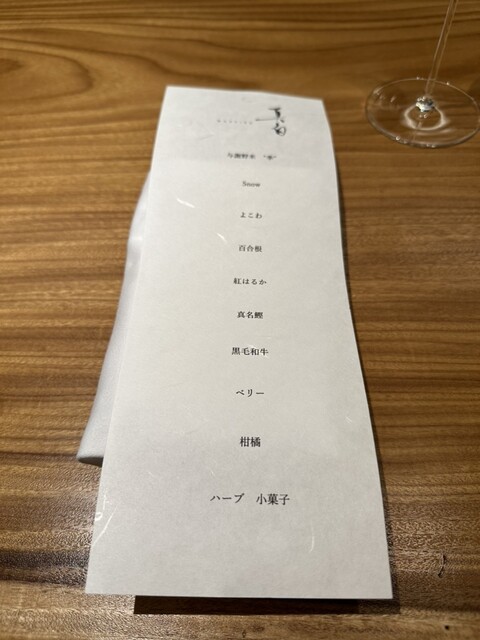 Snow
よこわ
百合根
紅はるか
真名鰹
黒毛和牛
ベリー
柑橘
ハーブ　小菓子